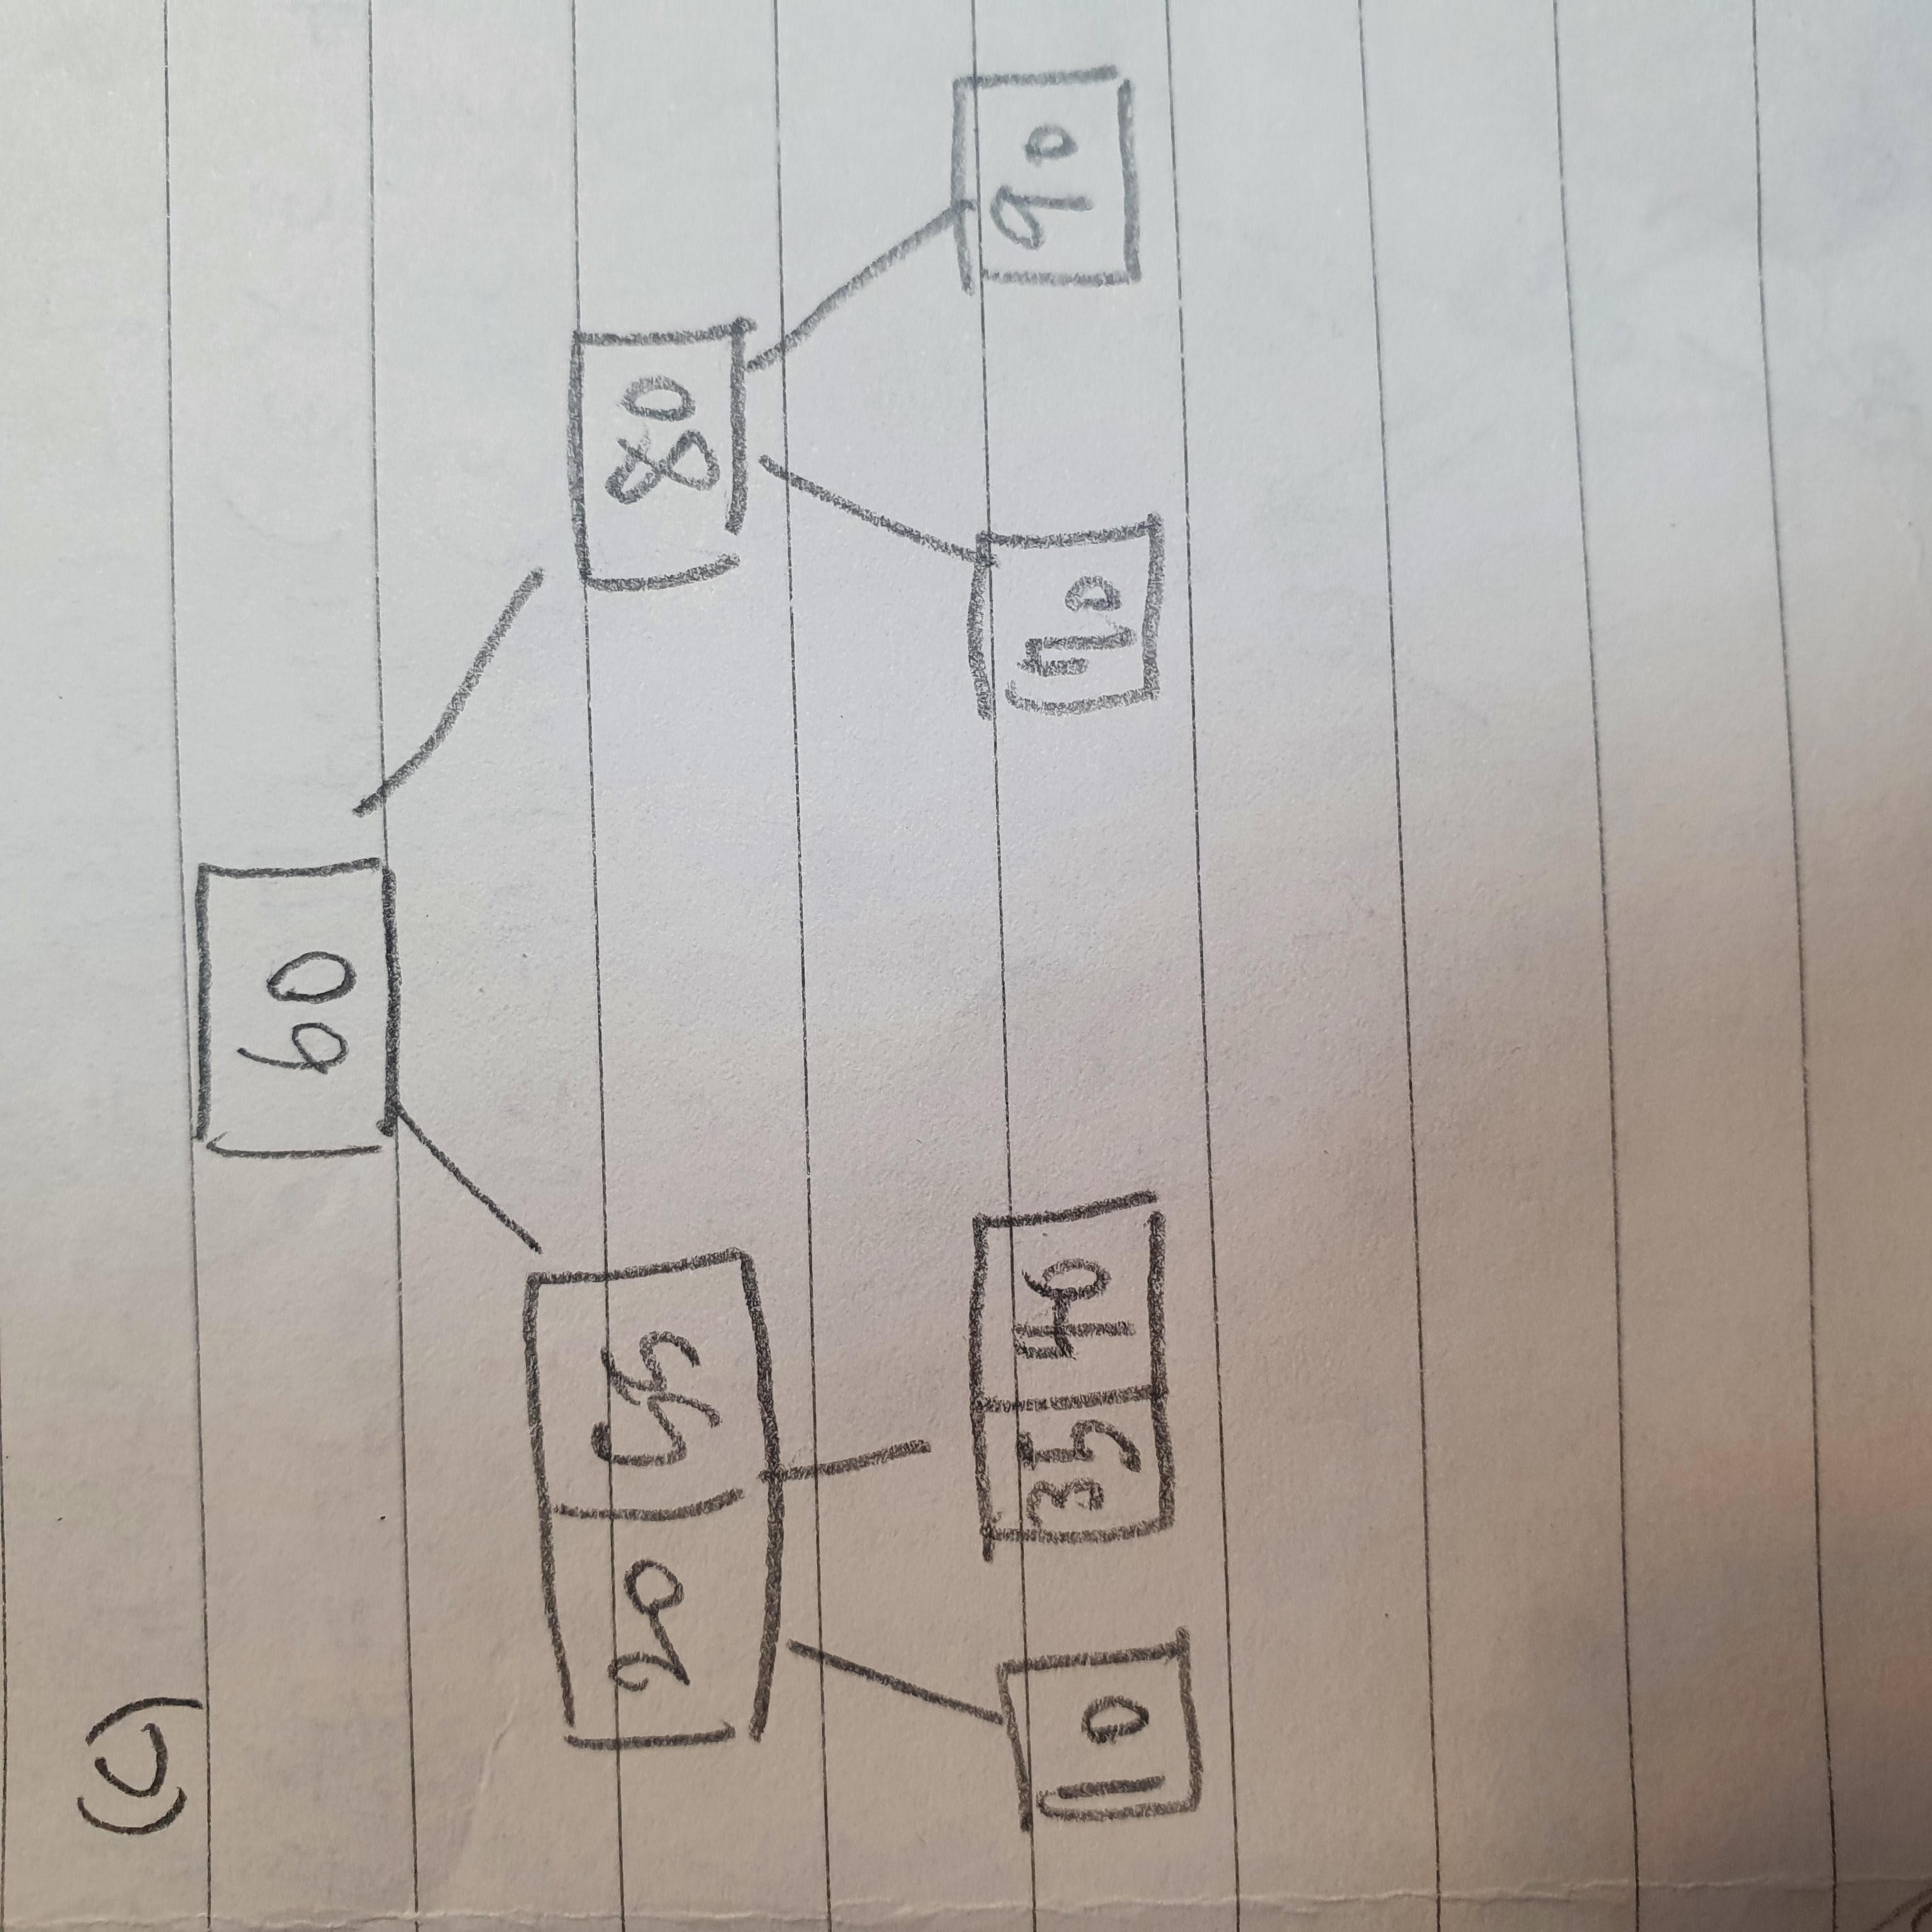 (C)
60
20 55
80
10
35 40
70
90